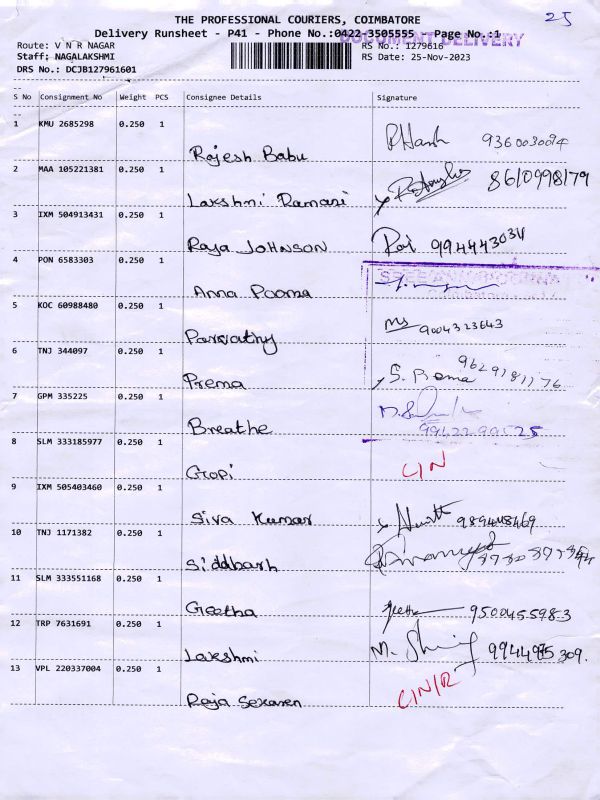 25
THE PROFESSIONAL COURIERS, COIMBATORE
Delivery Runsheet - P41 - Phone No.:0422-3505555 - Page No.:1
DOCUMENT DELIVERY
Route: V N R NAGAR RS No.: 1279616
Staff; NAGALAKSHMI RS Date: 25-Nov-2023
DRS No.: DCJB127961601
S No Consignment No Weight PCS Consignee Details Signature
1 KMU 2685298 0.250 1
Rajesh Babu 9360030094
2 MAA 105221381 0.250 1
Lakshmi Ramani 8610998179
3 IXM 504913431 0.250 1
Raja JOHNSON Raj 9944443034
4 PON 6583303 0.250 1
Anna Poorna
5 KOC 60988480 0.250 1
Parvathy 9004323643
6 TNJ 344097 0.250 1
Prema S. Prema 9629181176
7 GPM 335225 0.250 1
Breathe 9942290525
8 SLM 333185977 0.250 1
Gopi C/N
9 IXM 505403460 0.250 1
Siva Kumar
10 TNJ 1171382 0.250 1
Siddharth
11 SLM 333551168 0.250 1
Geetha Geetha 9500455983
12 TRP 7631691 0.250 1
Lakshmi 9944975309.
13 VPL 220337004 0.250 1
Raja Sekaren C/N/R